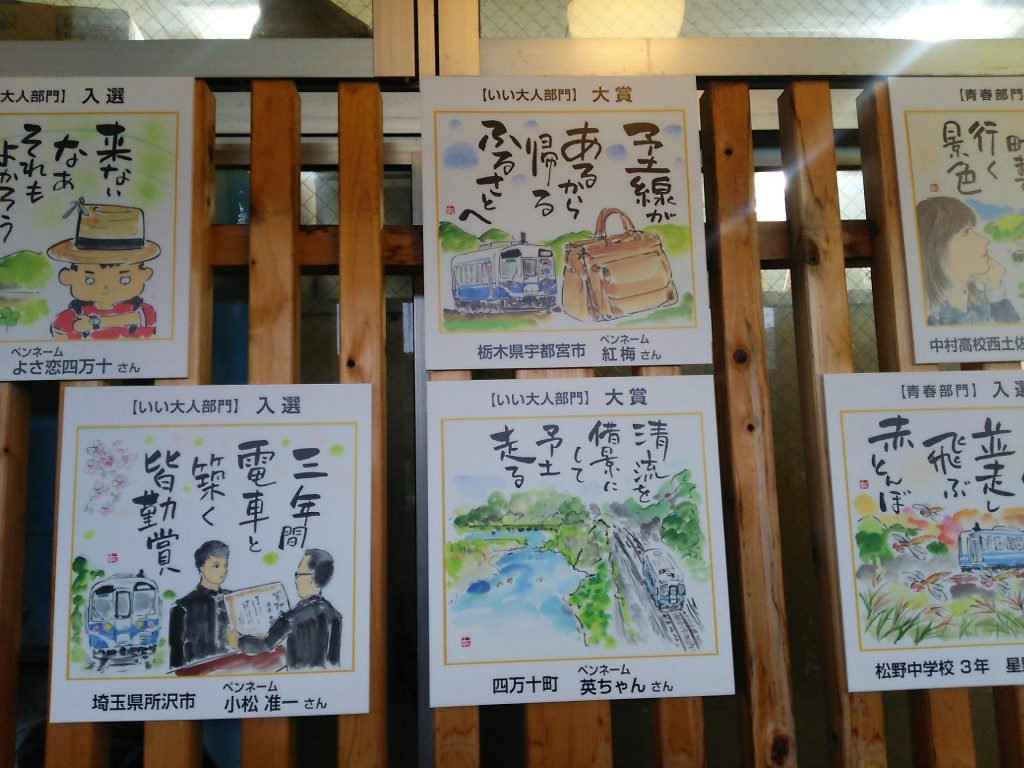 大人部門】 入選
来ない
なあ
それも
よかろう
ペンネーム
よさ恋四万十 さん
【いい大人部門】 大賞
予土線が
あるから
帰る
ふるさとへ
ペンネーム
栃木県宇都宮市 紅梅 さん
【青春部門
行く
景色
中村高校西土佐
【いい大人部門】 入選
三年間
電車と
築く
皆勤賞
ペンネーム
埼玉県所沢市 小松 准一 さん
【いい大人部門】 大賞
清流を
借景に
して
予土
走る
ペンネーム
四万十町 英ちゃん さん
【青春部門】 入
並走し
飛ぶ
赤とんぼ
松野中学校 3年